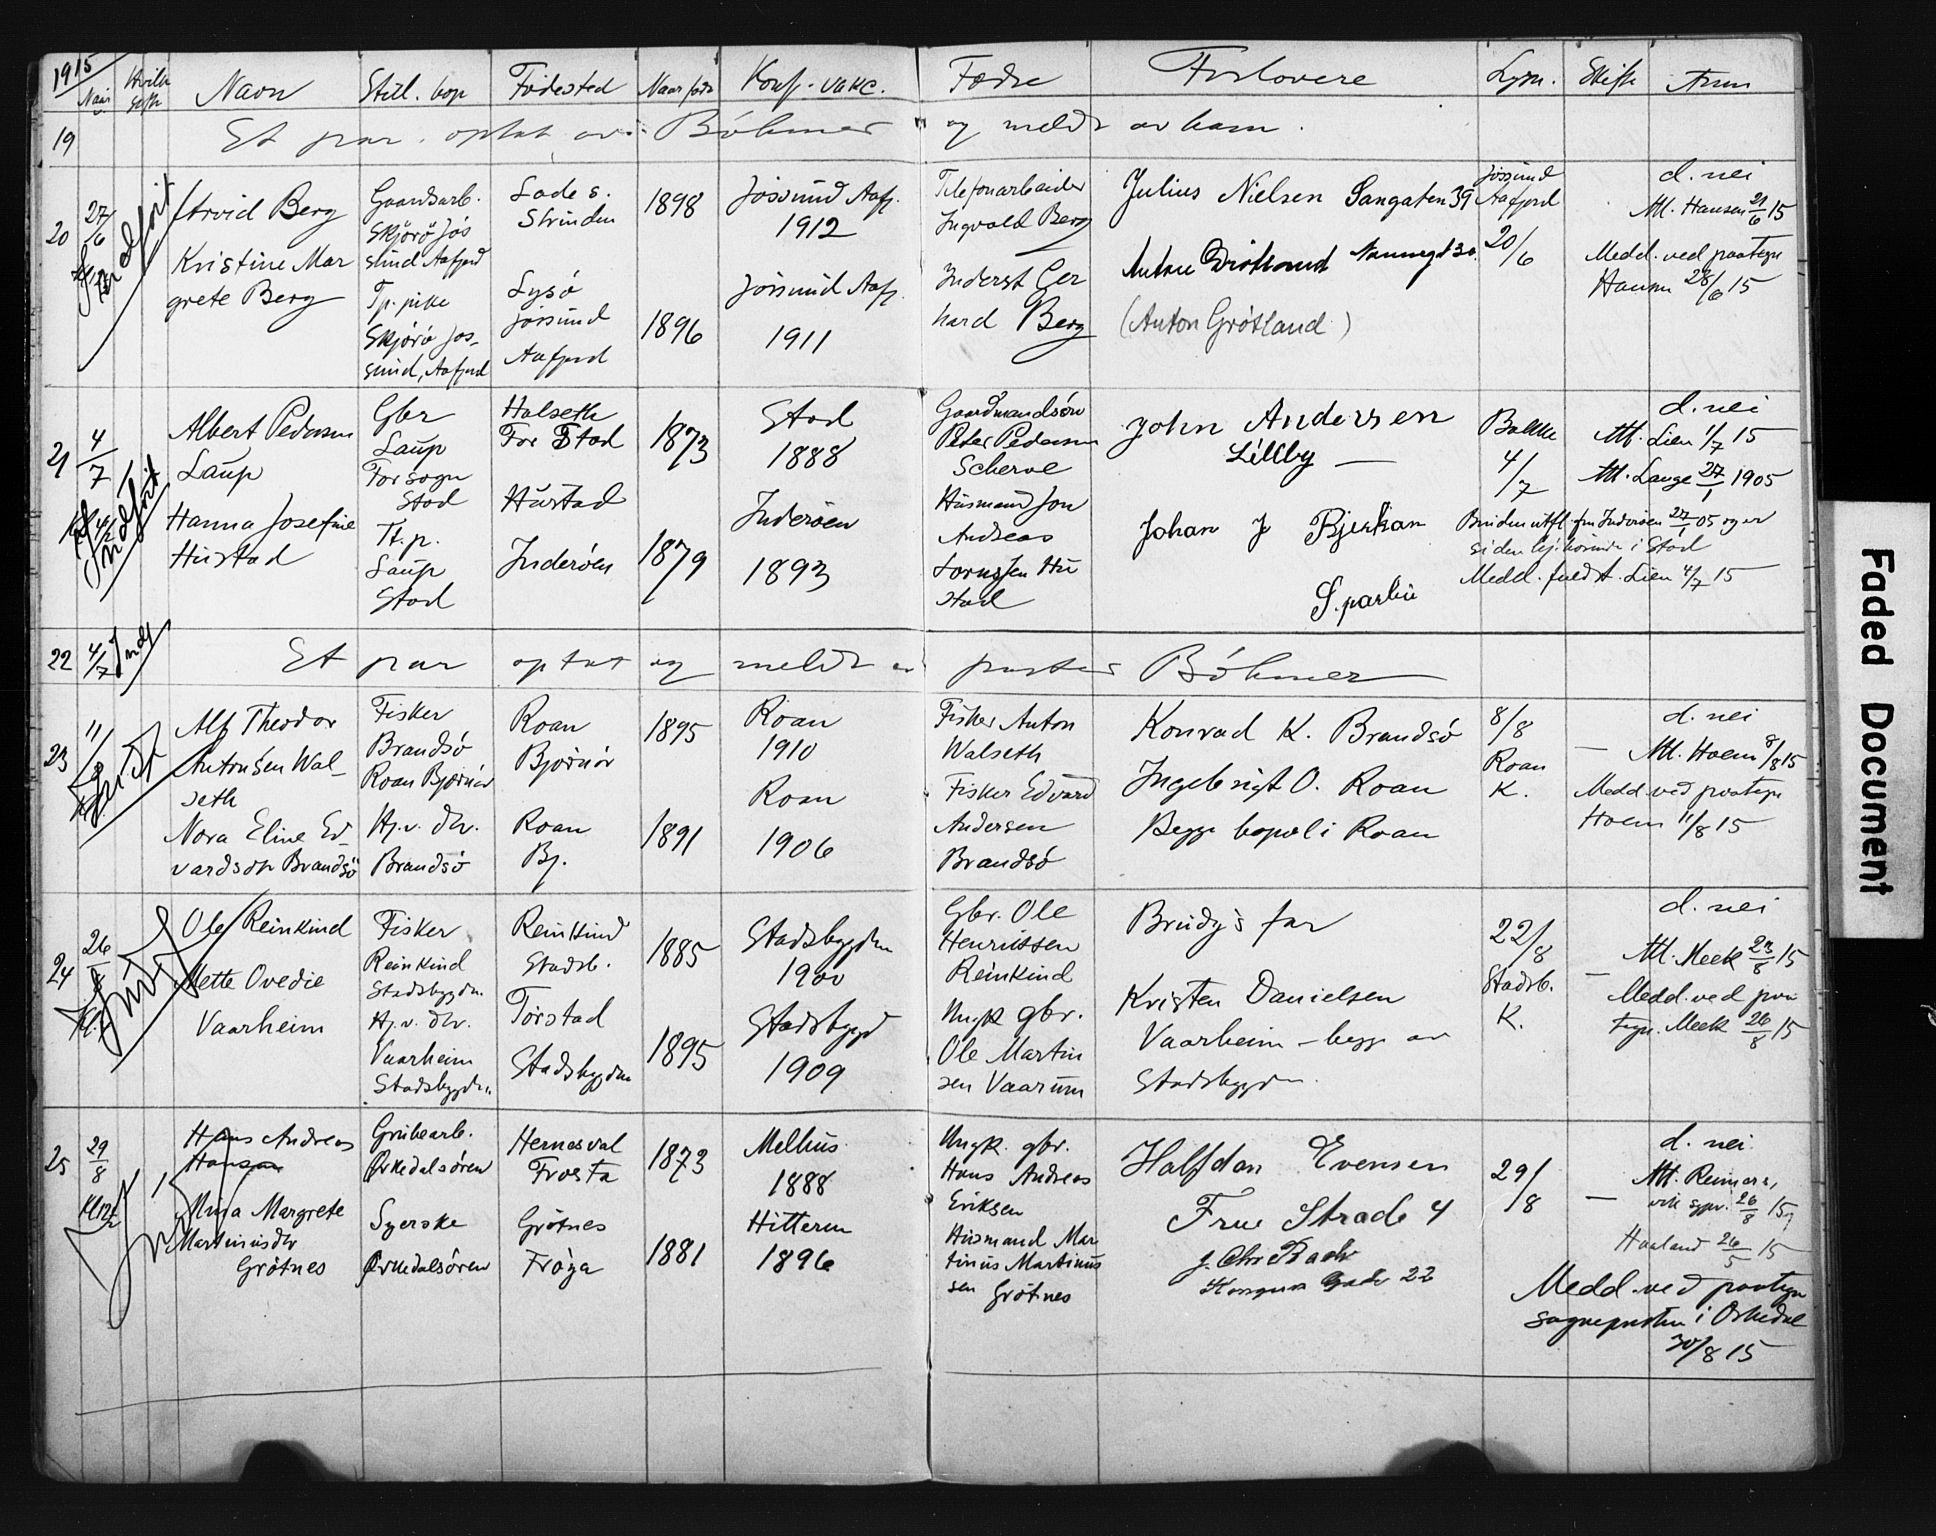 1915
Naar Hvilk gift Navn Still. bop Fødested Naar født Konf. vakc. Fædre Forlovere Lysn. Skifte Anm
19 Et par optat av Bøhmer og meldt av ham.
20 27/6 Indført
Arvid Berg
Kristine Mar
grete Berg
Gaardsarb.
Skjørø Jøs
sund Aafjord
Tj. pike
Skjørø Jøs-
sund, Aafjord
Lade s.
Strinden
Lysø
Jøssund
Aafjord
1898
1896
Jøssund Aafj.
1912
Jøssund Aafj.
1911
Telefonarbeider
Ingvald Berg
Inderst Ger
hard Berg
Julius Nielsen Sangaten 39
Anton Grøtland Nannugt 30.
(Anton Grøtland)
Jøssund
Aafjord
20/6
d. nei
Att. Hansen 21/6 15
Medd. ved paategn
Hansen 28/6 15
21 4/7 Indført
Albert Pedersen
Laup
Hanna Josefine
Hustad
Gbr
Laup
For sogn
Stod
Tj. p.
Laup
Stod
Halseth
For Stod
Hustad
Inderøen
1873
1879
Stod
1888
Inderøen
1893
Gaardmandsøn
Peter Pedersen
Scherve
Husmand Jon
Andreas
Hu
stad
John Andersen
Lillby
Johan J Bjerkan
Sparbu
Bakke
4/7
d. nei
Att. Lien 1/7 15
Att. Lange 27/1 1905
Bruden utfl. fra Inderøen 27/1 05 og er
siden hjhørende i Stod
Medd. fuldt. Lien 4/7 15
22 4/7 Indf
Et par optat og meldt av pastor Bøhmer
23 11/8 Indført
Alf Theodor
Antonsen Wal-
seth
Nora Eline Ed-
vardsdtr Brandsø
Fisker
Brandsø
Roan Bjørnør
Hj. v. dtr.
Brandsø
Roan
Bjørnør
Roan
Bj.
1895
1891
Roan
1910
Roan
1906
Fisker Anton
Walseth
Fisker Edvard
Andersen
Brandsø
Konrad K. Brandsø
Ingebrigt O. Roan
Begge bopæl i Roan
8/8
Roan
K.
—
d. nei
Att. Holm 8/8 15
Medd. ved paategn
Holm 11/8 15
24 26/8 Indført
Ole Reinkind
Mette Ovedie
Vaarheim
Fisker
Reinkind
Stadsbygden.
Hj. v. dtr.
Vaarheim
Stadsbygden.
Reinkind
Stadsb.
Tørstad
Stadsbygden
1885
1895
Stadsbygden
1900
Stadsbygd
1909
Gbr. Ole
Henriksen
Reinkind
Ungk gbr.
Ole Martin
sen Vaarum
Brudg's far
Kristen Danielsen
Vaarheim – begge av
Stadsbygden.
22/8
Stadsb.
K.
—
d. nei
Att. Meek 23/8 15
Medd. ved paa
tegn. Meek 26/8 15
25 29/8
Hans Andreas
Hansen
Mina Margrete
Martinusdtr
Grötnes
Grubearb.
Ørkedalsøren
Syerske
Ørkedalsøren
Hernesval
Frosta
Grötnes
Frøya
1873
1881
Melhus
1888
Hitteren
1896
Ungk. gbr.
Hans Andreas
Eriksen
Husmand Mar
tinus Martinus
sen Grötnes
Halfdan Evensen
Frue Strade 4
J. Chr Bach
Kongens Gade 22
29/8
—
d. nei.
Att. Reimers,
26/8 15,
Haaland 26/5 15
Medd. ved paategn
sogneprsten i Orkedal
30/8 15
Faded Document